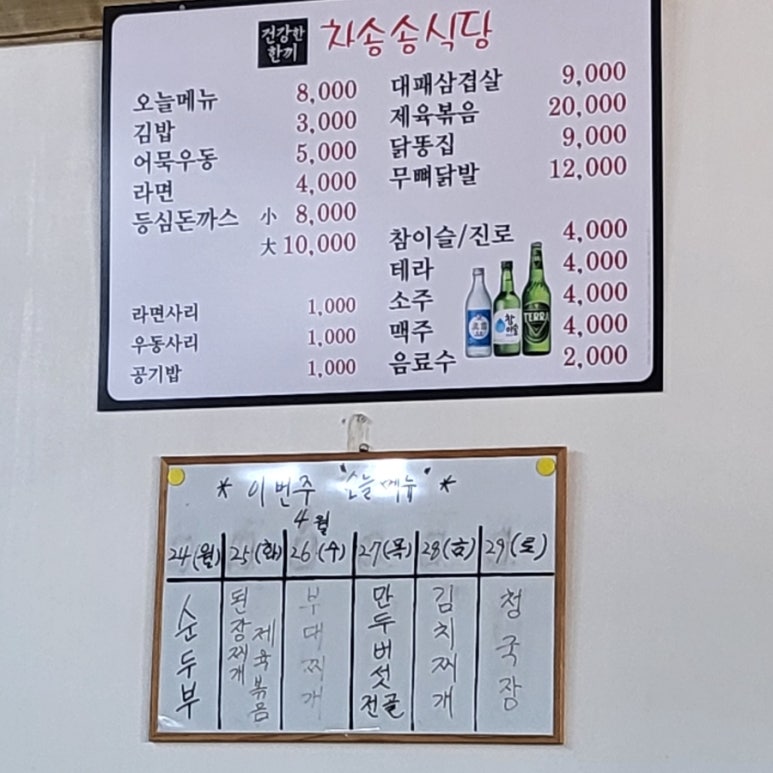 건강한
한끼
차송송식당
오늘메뉴 8,000
김밥 3,000
어묵우동 5,000
라면 4,000
등심돈까스 小 8,000
大 10,000
라면사리 1,000
우동사리 1,000
공기밥 1,000
대패삼겹살 9,000
제육볶음 20,000
닭똥집 9,000
무뼈닭발 12,000
참이슬/진로 4,000
테라 4,000
소주 4,000
맥주 4,000
음료수 2,000
TERRA
* 이번주 "오늘메뉴" *
4월
24(월) 25(화) 26(수) 27(목) 28(금) 29(토)
순두부
된장찌개
제육볶음
부대찌개
만두버섯
전골
김치찌개
청국장